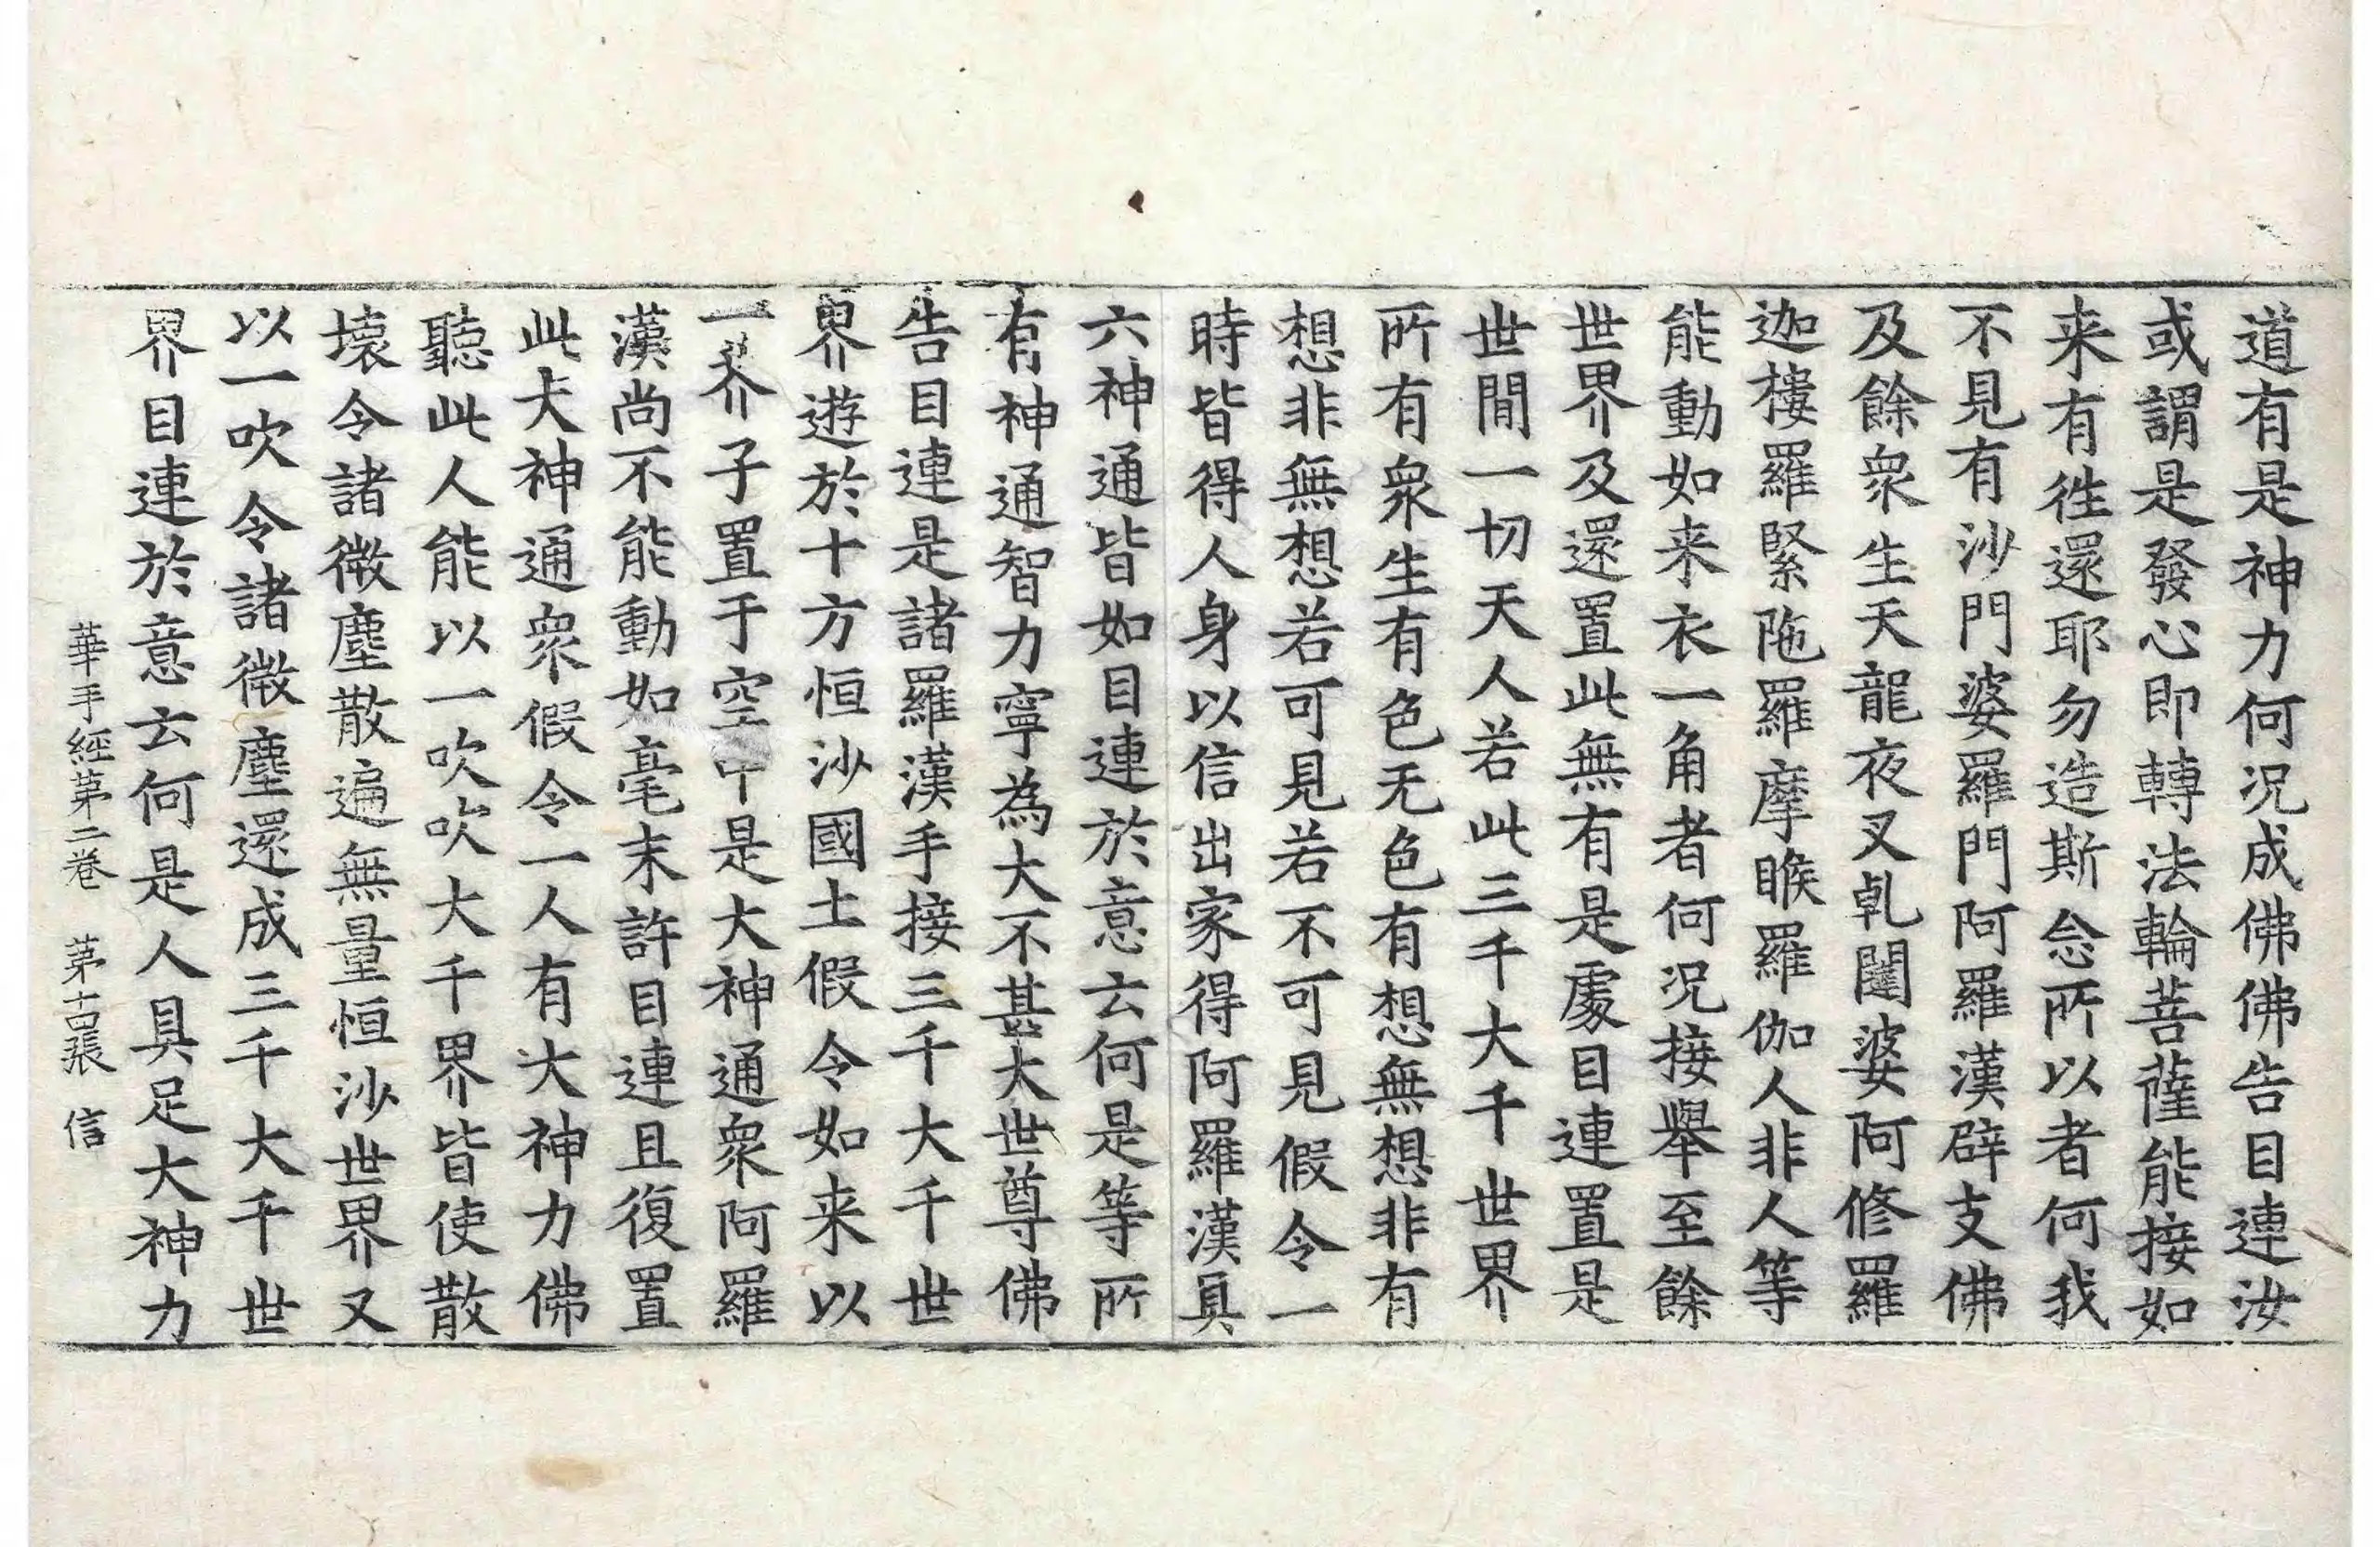 道有是神力何況成佛佛告目連汝
或謂是發心即轉法輪菩薩能接如
来有徃還耶勿造斯念所以者何我
不見有沙門婆羅門阿羅漢辟支佛
及餘衆生天龍夜叉乹闥婆阿修羅
迦樓羅緊陁羅摩睺羅伽人非人等
能動如来衣一角者何況接舉至餘
世界及還置此無有是處目連置是
世間一切天人若此三千大千世界
所有衆生有色无色有想無想非有
想非無想若可見若不可見假令一
時皆得人身以信出家得阿羅漢具
六神通皆如目連於意云何是等所
有神通智力寧為大不甚大世尊佛
告目連是諸羅漢手接三千大千世
界遊於十方恒沙國土假令如来以
一芥子置于空中是大神通衆阿羅
漢尚不能動如毫末許目連且復置
此大神通衆假令一人有大神力佛
聽此人能以一吹吹大千界皆使散
壞令諸微塵散遍無量恒沙世界又
以一吹令諸微塵還成三千大千世
界目連於意云何是人具足大神力
華手經第二卷 第十四張 信